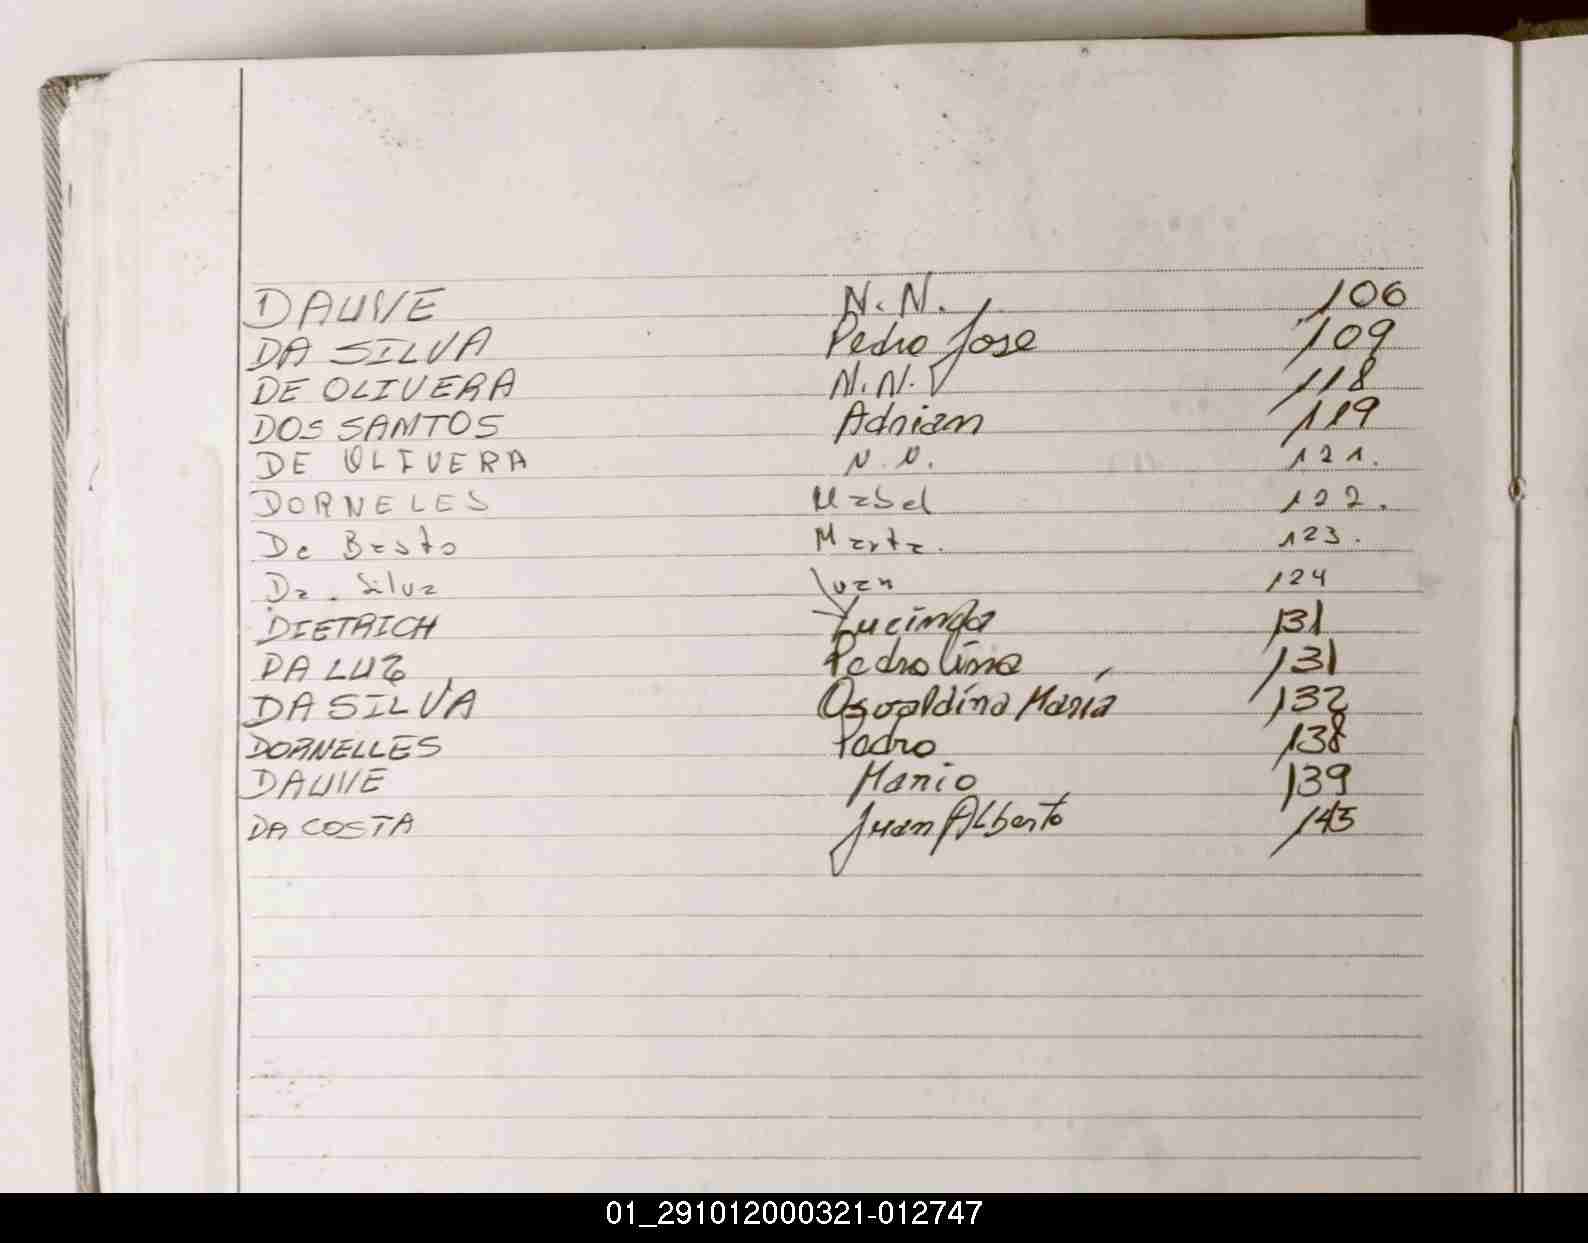 DAUVE N.N. 106
DA SILVA Pedro Jose 109
DE OLIVERA N.N. 118
DOS SANTOS Adrian 119
DE OLIVERA N.N. 121.
DORNELES Mabel 122.
De Basto Marta. 123.
Da. Silva Ivan 124
DIETRICH Lucinda 131
DA LUZ Pedrolina 131
DA SILVA Osvaldina María 132
DORNELLES Pedro 138
DAUVE Mario 139
DA COSTA Juan Alberto 145
01_291012000321-012747